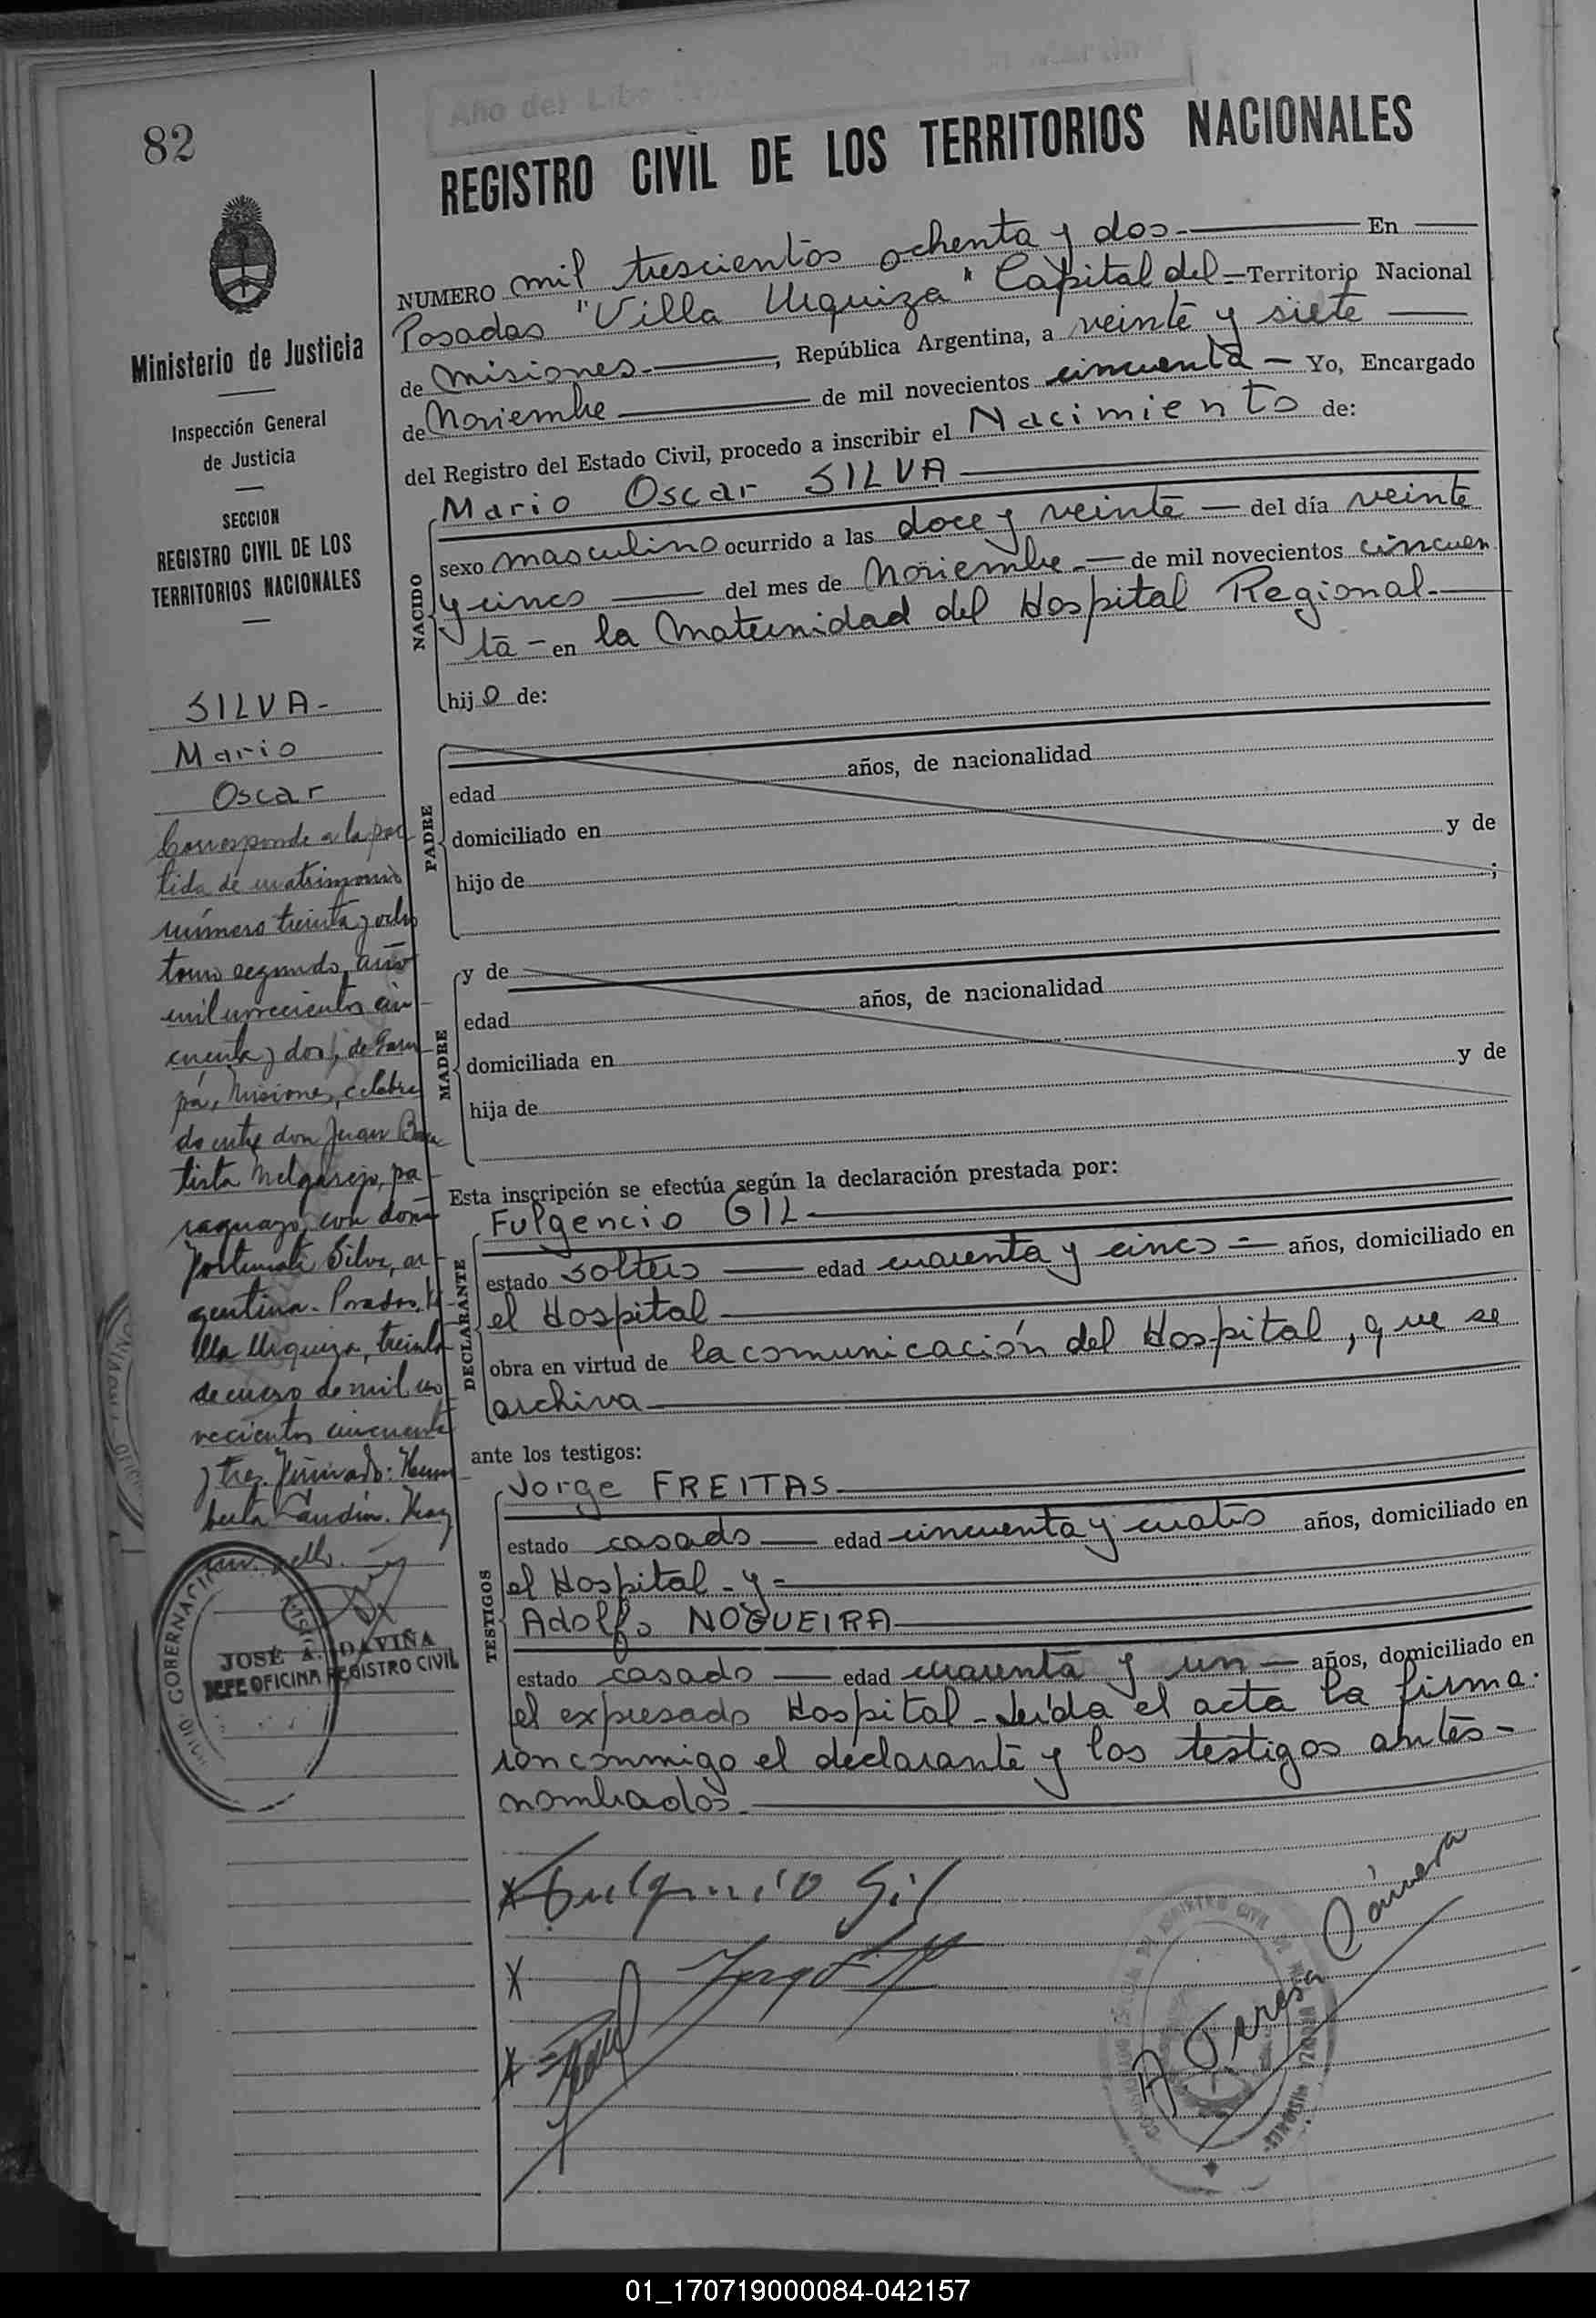 82
Año del Lib
REGISTRO CIVIL DE LOS TERRITORIOS NACIONALES
Ministerio de Justicia
Inspección General
de Justicia
SECCION
REGISTRO CIVIL DE LOS
TERRITORIOS NACIONALES
SILVA-
Mario
Oscar
Corresponde a la par
tida de matrimonio
número treinta y ocho
tomo segundo, año
mil novecientos cin-
cuenta y dos, de Garu-
pá, Misiones, celebra
do entre don Juan Bau
tista Melgarejo, pa-
raguayo, con doña
Fortunata Silva, ar-
gentina. Posadas, Vi-
lla Urquiza, treinta
de enero de mil no
vecientos cincuenta
y tres. Firmado:
Hay
un sello.
GOBERNACI
JOSÉ A. DAVIÑA
JEFE OFICINA REGISTRO CIVIL
NUMERO mil trescientos ochenta y dos.- En
Posadas "Villa Urquiza" Capital del - Territorio Nacional
de Misiones.-, República Argentina, a veinte y siete
de Noviembre de mil novecientos cincuenta - Yo, Encargado
del Registro del Estado Civil, procedo a inscribir el Nacimiento de:
NACIDO
Mario Oscar SILVA
sexo masculino ocurrido a las doce y veinte - del día veinte
y cinco del mes de Noviembre.- de mil novecientos cincuen
ta - en la Maternidad del Hospital Regional.-
hijo de:
PADRE
edad años, de nacionalidad
domiciliado en
hijo de y de
;
MADRE
y de
edad años, de nacionalidad
domiciliada en
hija de y de
Esta inscripción se efectúa según la declaración prestada por:
DECLARANTE
Fulgencio GIL
estado soltero edad cuarenta y cinco - años, domiciliado en
el Hospital
obra en virtud de la comunicación del Hospital, que se
archiva
ante los testigos:
TESTIGOS
Jorge FREITAS
estado casado edad cincuenta y cuatro años, domiciliado en
el Hospital - y -
Adolfo NOGUEIRA
estado casado edad cuarenta y un - años, domiciliado en
el expresado Hospital - Leída el acta la firma-
ron conmigo el declarante y los testigos antes-
nombrados.
X Fulgencio Gil
X
X
A Teresa Cámera
01_170719000084-042157